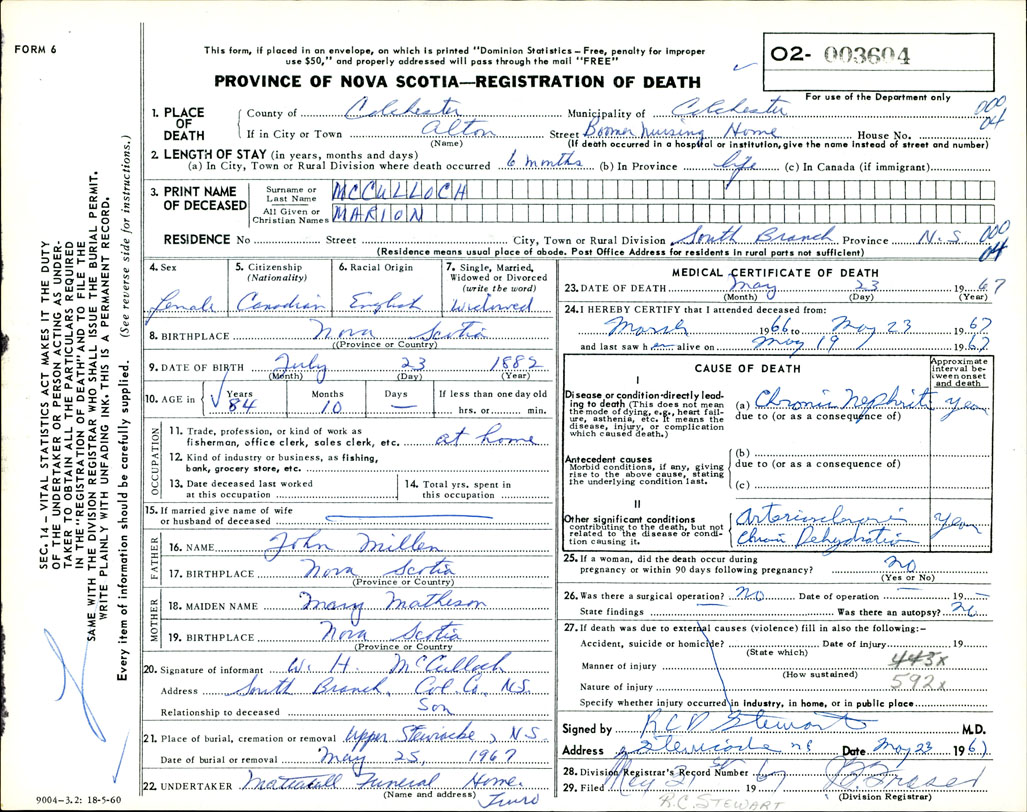 FORM 6
This form, if placed in an envelope, on which is printed "Dominion Statistics – Free, penalty for improper
use $50," and properly addressed will pass through the mail "FREE"
PROVINCE OF NOVA SCOTIA—REGISTRATION OF DEATH
02- 003604
For use of the Department only
1. PLACE OF DEATH
County of Colchester Municipality of Colchester 000
If in City or Town Alton Street Boomer Nursing Home House No. 04
(Name) (If death occurred in a hospital or institution, give the name instead of street and number)
2. LENGTH OF STAY (in years, months and days)
(a) In City, Town or Rural Division where death occurred 6 months (b) In Province life (c) In Canada (if immigrant)
3. PRINT NAME OF DECEASED
Surname or Last Name MCCULLOCH
All Given or Christian Names MARION
RESIDENCE No Street City, Town or Rural Division South Branch Province N.S 000
(Residence means usual place of abode. Post Office Address for residents in rural parts not sufficient) 04
4. Sex 5. Citizenship 6. Racial Origin 7. Single, Married,
(Nationality) Widowed or Divorced
(write the word)
female Canadian English Widowed
8. BIRTHPLACE Nova Scotia
(Province or Country)
9. DATE OF BIRTH July 23 1882
(Month) (Day) (Year)
10. AGE in Years Months Days If less than one day old
84 10 — hrs. or min.
OCCUPATION
11. Trade, profession, or kind of work as
fisherman, office clerk, sales clerk, etc. at home
12. Kind of industry or business, as fishing,
bank, grocery store, etc.
13. Date deceased last worked
at this occupation
14. Total yrs. spent in
this occupation
15. If married give name of wife
or husband of deceased
FATHER
16. NAME John Millen
17. BIRTHPLACE Nova Scotia
(Province or Country)
MOTHER
18. MAIDEN NAME Mary Matheson
19. BIRTHPLACE Nova Scotia
(Province or Country)
20. Signature of informant W. H. McCulloch
Address South Branch, Col. Co. N.S.
Relationship to deceased Son
21. Place of burial, cremation or removal Upper Stewiacke, N.S.
Date of burial or removal May 25, 1967
22. UNDERTAKER Mattatall Funeral Home.
(Name and address) Truro
MEDICAL CERTIFICATE OF DEATH
23. DATE OF DEATH May 23 1967
(Month) (Day) (Year)
24. I HEREBY CERTIFY that I attended deceased from:
March 1966 to May 23 1967
and last saw h alive on May 19 1967
CAUSE OF DEATH
Approximate interval between onset and death
I
Disease or condition directly leading to death (This does not mean
the mode of dying, e.g., heart failure, asthenia, etc. It means the
disease, injury, or complication
which caused death.)
(a) Chronic Nephritis years
due to (or as a consequence of)
Antecedent causes
Morbid conditions, if any, giving
rise to the above cause, stating
the underlying condition last.
(b)
due to (or as a consequence of)
(c)
II
Other significant conditions
contributing to the death, but not
related to the disease or condition causing it.
Arteriosclerosis years
Chronic Dehydration
25. If a woman, did the death occur during
pregnancy or within 90 days following pregnancy? no
(Yes or No)
26. Was there a surgical operation? No Date of operation 19 —
State findings Was there an autopsy? No
27. If death was due to external causes (violence) fill in also the following:–
Accident, suicide or homicide? Date of injury 19
(State which)
Manner of injury 443x
(How sustained)
Nature of injury 592x
Specify whether injury occurred in industry, in home, or in public place
Signed by R C D Stewart M.D.
Address Stewiacke NS Date May 23 1967
28. Division Registrar's Record Number
29. Filed May 1967
(Division Registrar)
R.C. STEWART
SEC. 14 – VITAL STATISTICS ACT MAKES IT THE DUTY
OF THE UNDERTAKER OR PERSON ACTING AS UNDER-
TAKER TO OBTAIN ALL THE PARTICULARS REQUIRED
IN THE "REGISTRATION OF DEATH" AND TO FILE THE
SAME WITH THE DIVISION REGISTRAR WHO SHALL ISSUE THE BURIAL PERMIT.
WRITE PLAINLY WITH UNFADING INK. THIS IS A PERMANENT RECORD.
Every item of information should be carefully supplied. (See reverse side for instructions.)
9004-3.2: 18-5-60